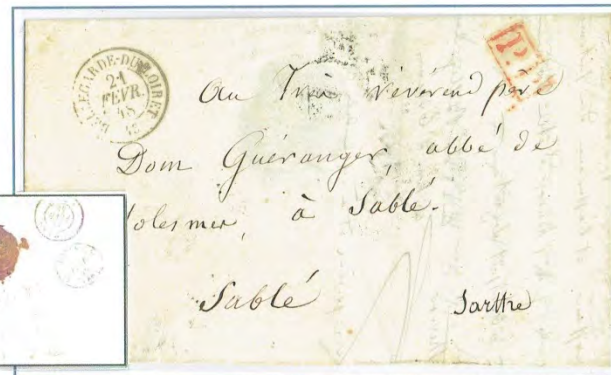 BELLEGARDE-DU-LOIRET
21
FEVR.
48
Au Très révérend père
Dom Guéranger, abbé de
Solesmes, à Sablé.
Sablé
Sarthe